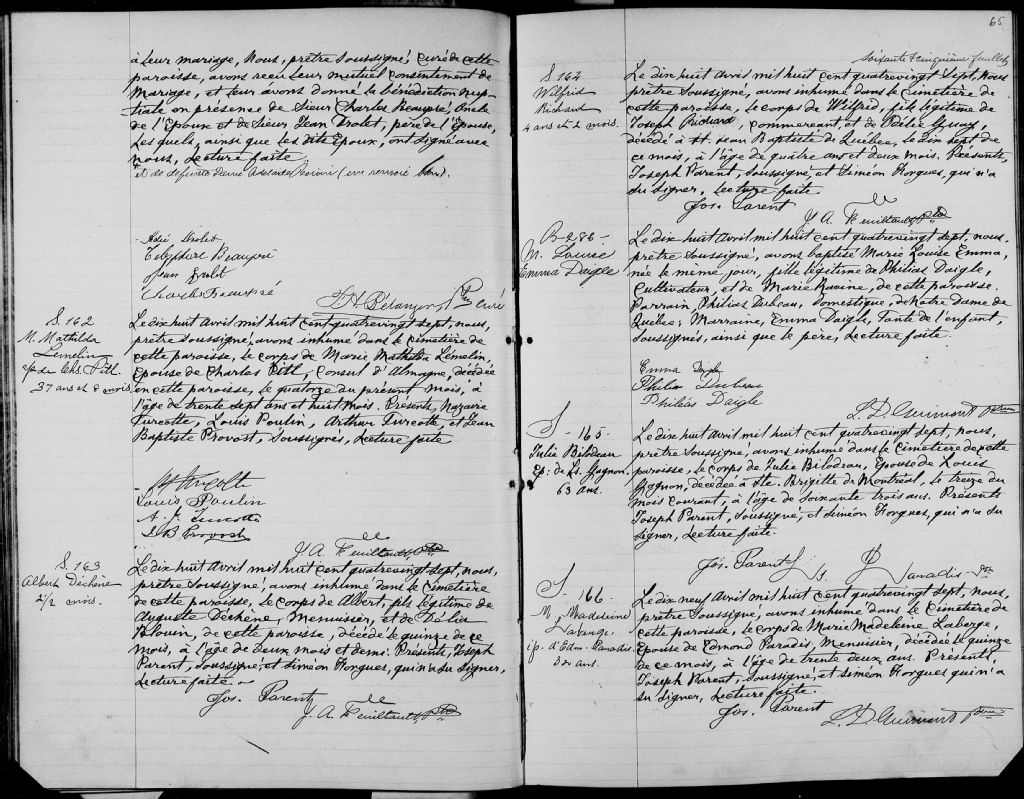 à leur mariage, Nous, prêtre soussigné, curé de cette
paroisse, avons reçu leur mutuel consentement de
Mariage, et leur avons donné la bénédiction nup-
tiale en présence de Sieur Charles Beaupré, Oncle
de l'Epoux et de Sieur Jean Drolet, père de l'Epouse,
Lesquels, ainsi que les dits Epoux, ont signé avec
nous, Lecture faite
et de defunte Dame Adelaide (un renvoi bon).
Drolet
Telesphore Beaupré
Jean Drolet
Charles Beaupré
F. H. Bélanger, Ptre Curé
S. 162
M. Mathilda
Lemelin
ep. de Chs. Pitl
37 ans et 8 mois
Le dix huit Avril mil huit cent quatrevingt sept, nous,
prêtre soussigné, avons inhumé dans le cimetière de
cette paroisse, le corps de Marie Mathilda Lemelin,
Epouse de Charles Pitl, Consul d'Almagne, décédée
en cette paroisse, le quatorze du présent mois, à
l'âge de trente sept ans et huit mois. Présents, Nazaire
Turcotte, Louis Poulin, Arthur Turcotte, et Jean
Baptiste Provost, Soussignés, Lecture faite
N. Turcotte
Louis Poulin
A. J. Turcotte
J. B. Provost
J. A. Feuiltault, Ptre
S. 163
Albert Déchêne
2 1/2 mois.
Le dix huit Avril mil huit cent quatrevingt sept, nous,
prêtre soussigné, avons inhumé dans le cimetière
de cette paroisse, le corps de Albert, fils légitime de
Auguste Déchêne, Menuisier, et de Délia
Blouin, de cette paroisse, décédé le quinze de ce
mois, à l'âge de deux mois et demi. Présents, Joseph
Parent, soussigné, et Siméon Horgues, qui n'a su signer,
Lecture faite
Jos. Parent
J. A. Feuiltault, Ptre
65
Soixante & cinquième feuillet
S. 164
Wilfrid
Richard
4 ans et 2 mois.
Le dix huit Avril mil huit cent quatrevingt sept, nous,
prêtre soussigné, avons inhumé dans le cimetière de
cette paroisse, le corps de Wilfrid, fils légitime de
Joseph Richard, commerçant, et de Délia Guay,
décédé à St. Jean Baptiste de Québec, le dix sept de
ce mois, à l'âge de quatre ans et deux mois. Présents,
Joseph Parent, soussigné, et Siméon Horgues, qui n'a
su signer, Lecture faite.
Jos. Parent
J. A. Feuiltault, Ptre
B-286-
M. Louise
Emma Daigle
Le dix huit Avril mil huit cent quatrevingt sept, nous,
prêtre soussigné, avons baptisé Marie Louise Emma,
née le même jour, fille légitime de Philias Daigle,
Cultivateur, et de Marie Racine, de cette paroisse.
Parrain Philias Dubeau, domestique, de Notre Dame de
Quebec; Marraine, Emma Daigle, Tante de l'enfant,
Soussignés, ainsi que le père, Lecture faite.
Emma Daigle
Philias Dubeau
Philéas Daigle
L. D. Guimont Ptre
S - 165 -
Julie Bilodeau
Ep: de Ls. Gagnon.
63 ans.
Le dix huit Avril mil huit cent quatrevingt sept, nous,
prêtre soussigné, avons inhumé dans le cimetière de cette
paroisse, le corps de Julie Bilodeau, Epouse de Louis
Gagnon, décédée à Ste. Brigitte de Montréal, le treize du
mois courant, à l'âge de soixante trois ans. Présents
Joseph Parent, soussigné, et Siméon Horgues, qui n'a su
signer, Lecture faite.
Jos. Parent
Paradis Ptre
S - 166 -
M. Madeleine
Laberge.
ép. d'Edm. Paradis.
32 ans.
Le dix neuf Avril mil huit cent quatrevingt sept, nous,
prêtre soussigné, avons inhumé dans le cimetière de
cette paroisse, le corps de Marie Madeleine Laberge,
Epouse de Edmond Paradis, Menuisier, décédée le quinze
de ce mois, à l'âge de trente deux ans. Présents,
Joseph Parent, soussigné, et Siméon Horgues qui n'a
su signer, Lecture faite.
Jos. Parent
L. D. Guimont Ptre